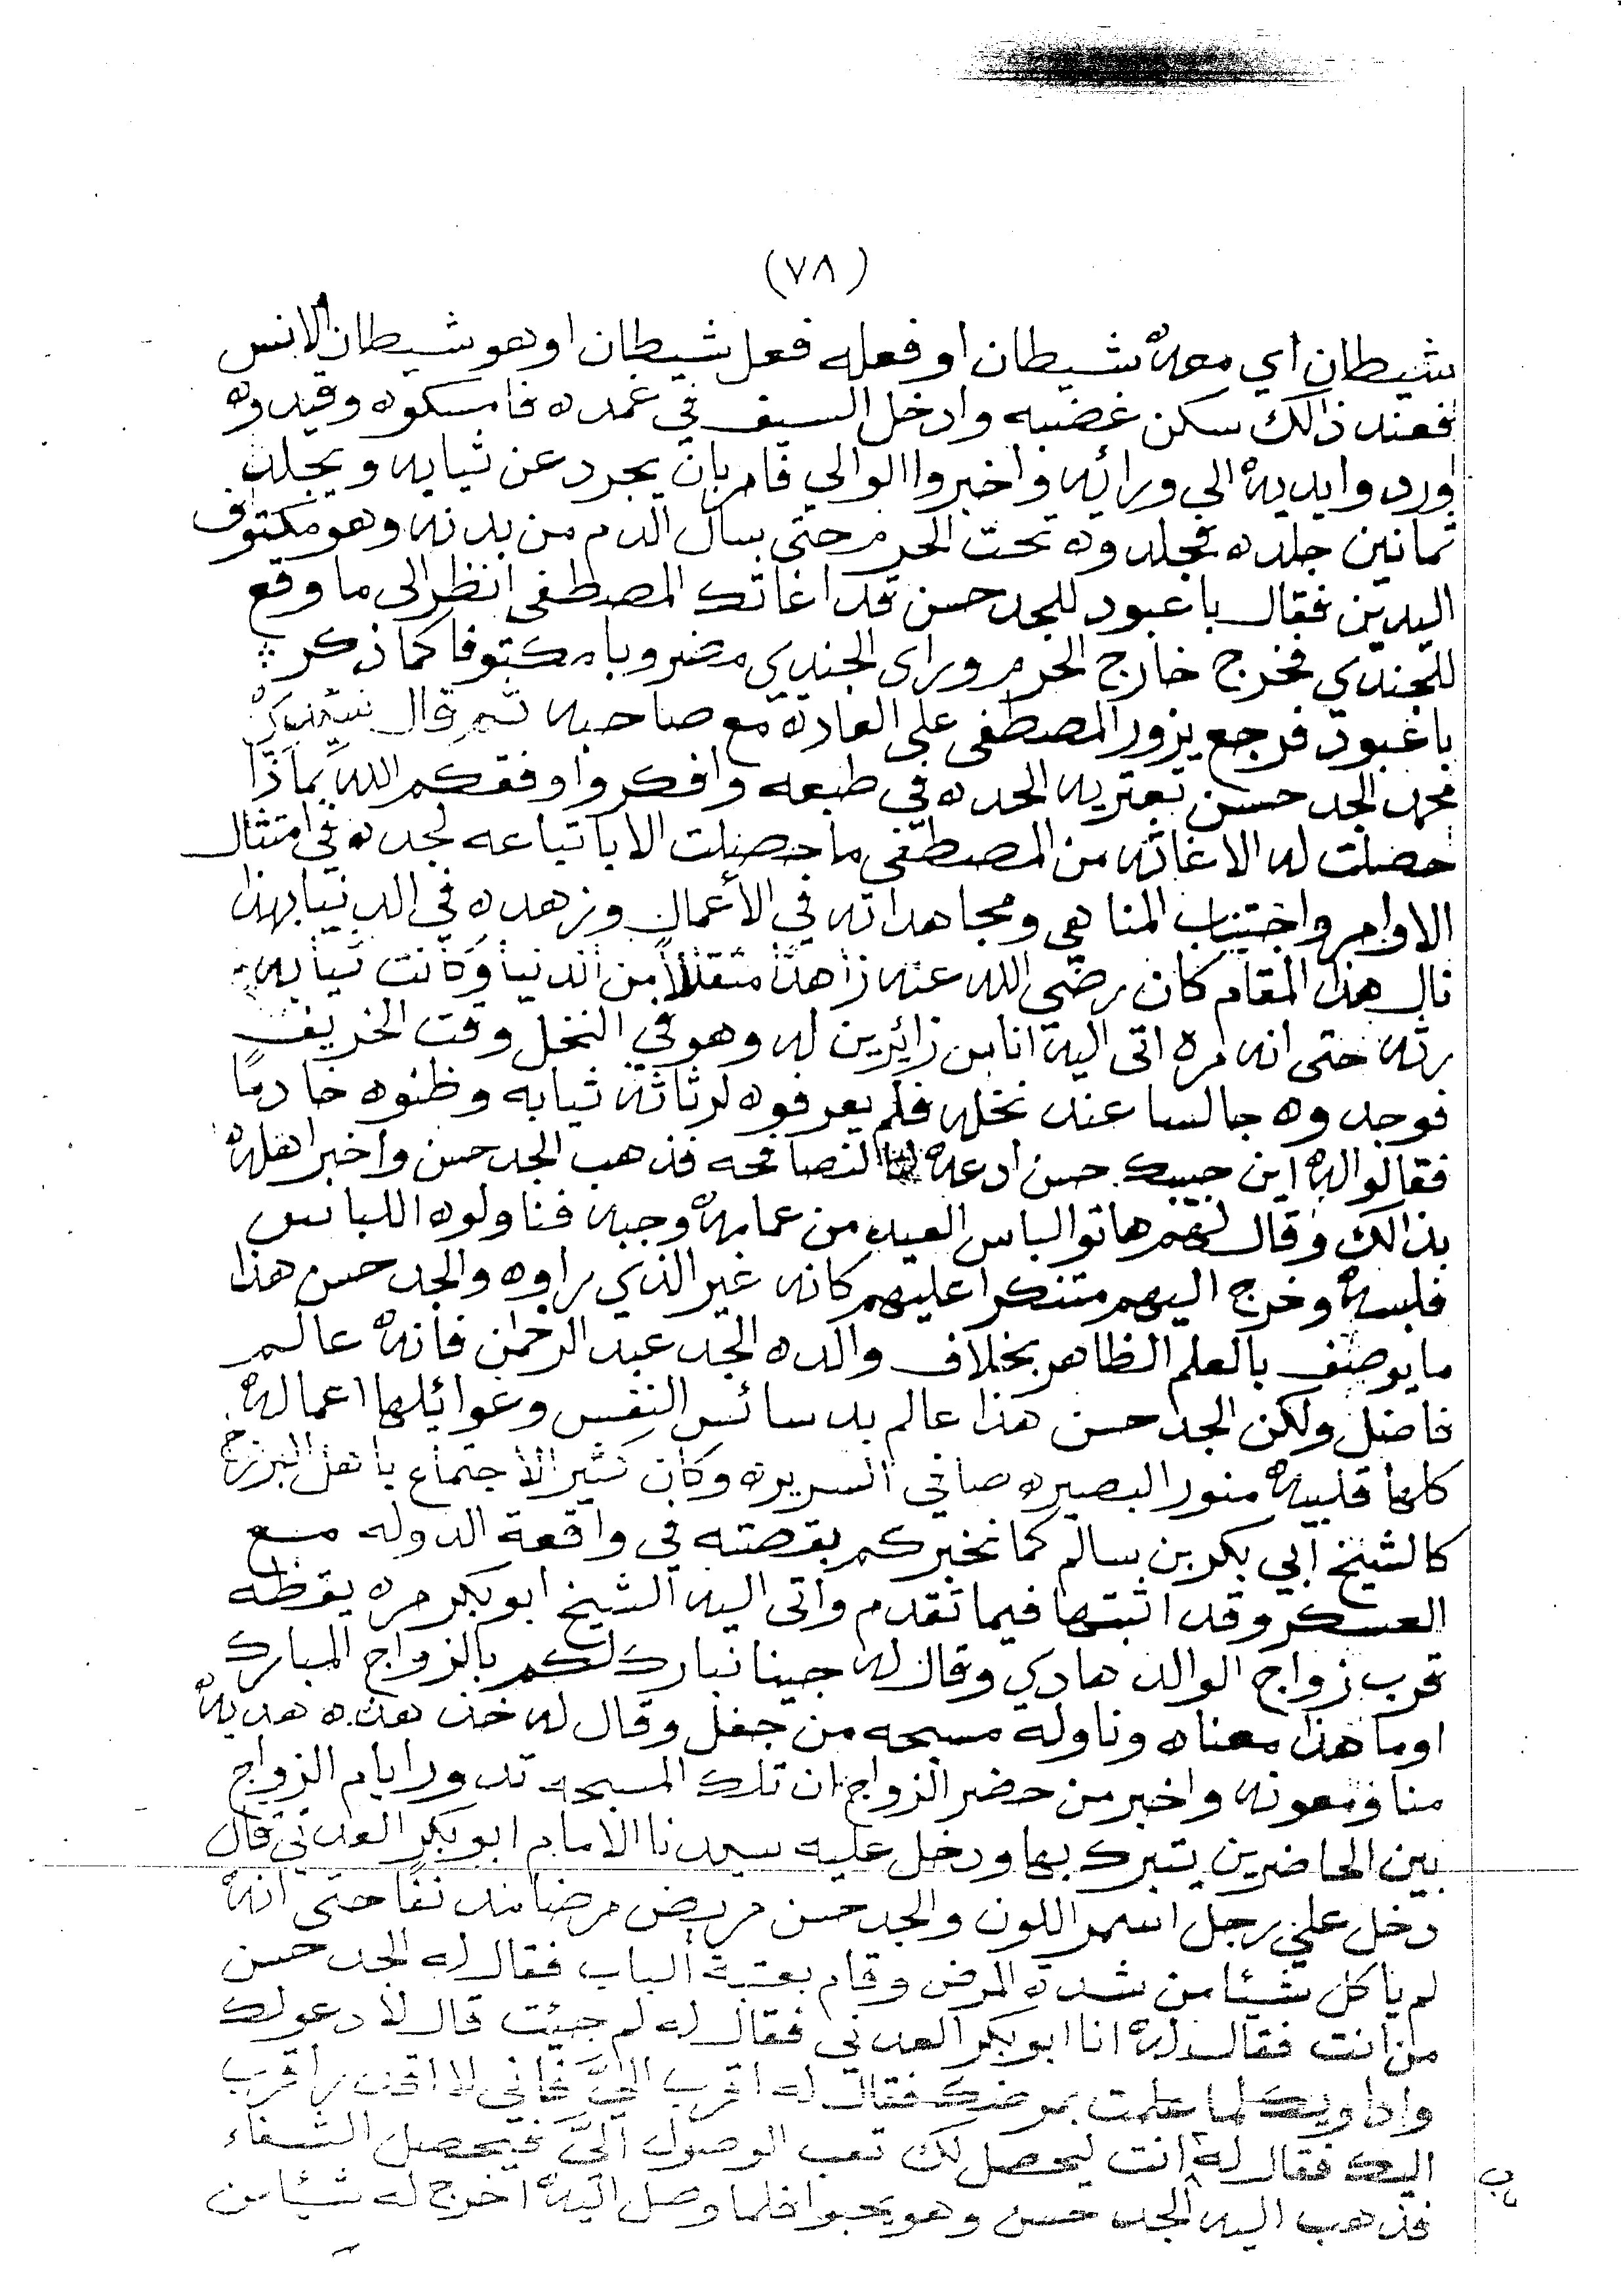 (٧٨)
شيطان اي معه شيطان او فعله فعل شيطان او هو شيطان الانس
فعند ذالك سكن غضبه وادخل السيف في غمده فامسكوه وقيدوه
وردوا يديه الى ورائه واخبروا الوالي فامر بان يجرد عن ثيابه ويجلد
ثمانين جلده فجلدوه تحت الحرم حتى سال الدم من بدنه وهو مكتوف
اليدين فقال باعبود للجد حسن قد اغاثك المصطفى انظر الى ما وقع
للجندي فخرج خارج الحرم وراى الجندي مضروبا مكتوفا كما ذكر
باعبود فرجع يزور المصطفى على العادة مع صاحبه ثم قال
الجد حسن تعتريه الحده في طبعه وافكروا وفقكم الله بماذا
حصلت له الاغاثه من المصطفى ما حصلت الا باتباعه لجده في امتثال
الاوامر واجتناب المناهي ومجاهداته في الأعمال وزهده في الدنيا بهذا
نال هذا المقام كان رضي الله عنه زاهدًا متقللاً من الدنيا وكانت ثيابه
رثه حتى انه مره اتى اليه اناس زائرين له وهو في النخل وقت الخريف
فوجدوه جالسا عند نخله فلم يعرفوه لرثاثة ثيابه وظنوه خادمًا
فقالوا له اين حبيبك حسن ادعه لنا لنصافحه فذهب الجد حسن واخبر اهله
بذالك وقال لهم هاتوا لباس العيد من عمامه وجبه فناولوه اللباس
فلبسه وخرج اليهم متنكرا عليهم كانه غير الذي راوه والجد حسن هذا
ما يوصف بالعلم الظاهر بخلاف والده الجد عبد الرحمن فانه عالم
فاضل ولكن الجد حسن هذا عالم بدسائس النفس وغوائلها اعماله
كلها قلبيه منور البصيره صافي السريره وكان كثير الاجتماع باهل البرزخ
كالشيخ ابي بكر بن سالم كما نخبركم بقصته في واقعة الدوله مع
العسكر وقد اثبتها فيما تقدم واتى اليه الشيخ ابوبكر مره يقظه
قرب زواج الوالد هادي وقال له جينا نبارك لكم بالزواج المبارك
او ما هذا معناه وناوله مسبحه من جفل وقال له خذ هذه هديه
منا ومعونه واخبر من حضر الزواج ان تلك المسبحه تدور ايام الزواج
بين الحاضرين يتبرك بها ودخل عليه سيدنا الامام ابوبكر العدني قال
دخل علي رجل اسمر اللون والجد حسن مريض مرضا مدنفًا حتى انه
لم ياكل شيئا من شدة المرض وقام بعتبة الباب فقال له الجد حسن
من أنت فقال له انا ابوبكر العدني فقال له لم جيئت قال لادعو لك
واداويك لما علمت بمرضك فقال له اقرب اليَّ فاني لا اقدر اقرب
اليك فقال له انت ليحصل لك تعب الوصول اليَّ فيحصل الشفاء
فذهب اليه الجد حسن وهو يحبوا فلما وصل اليه اخرج له شيئا من